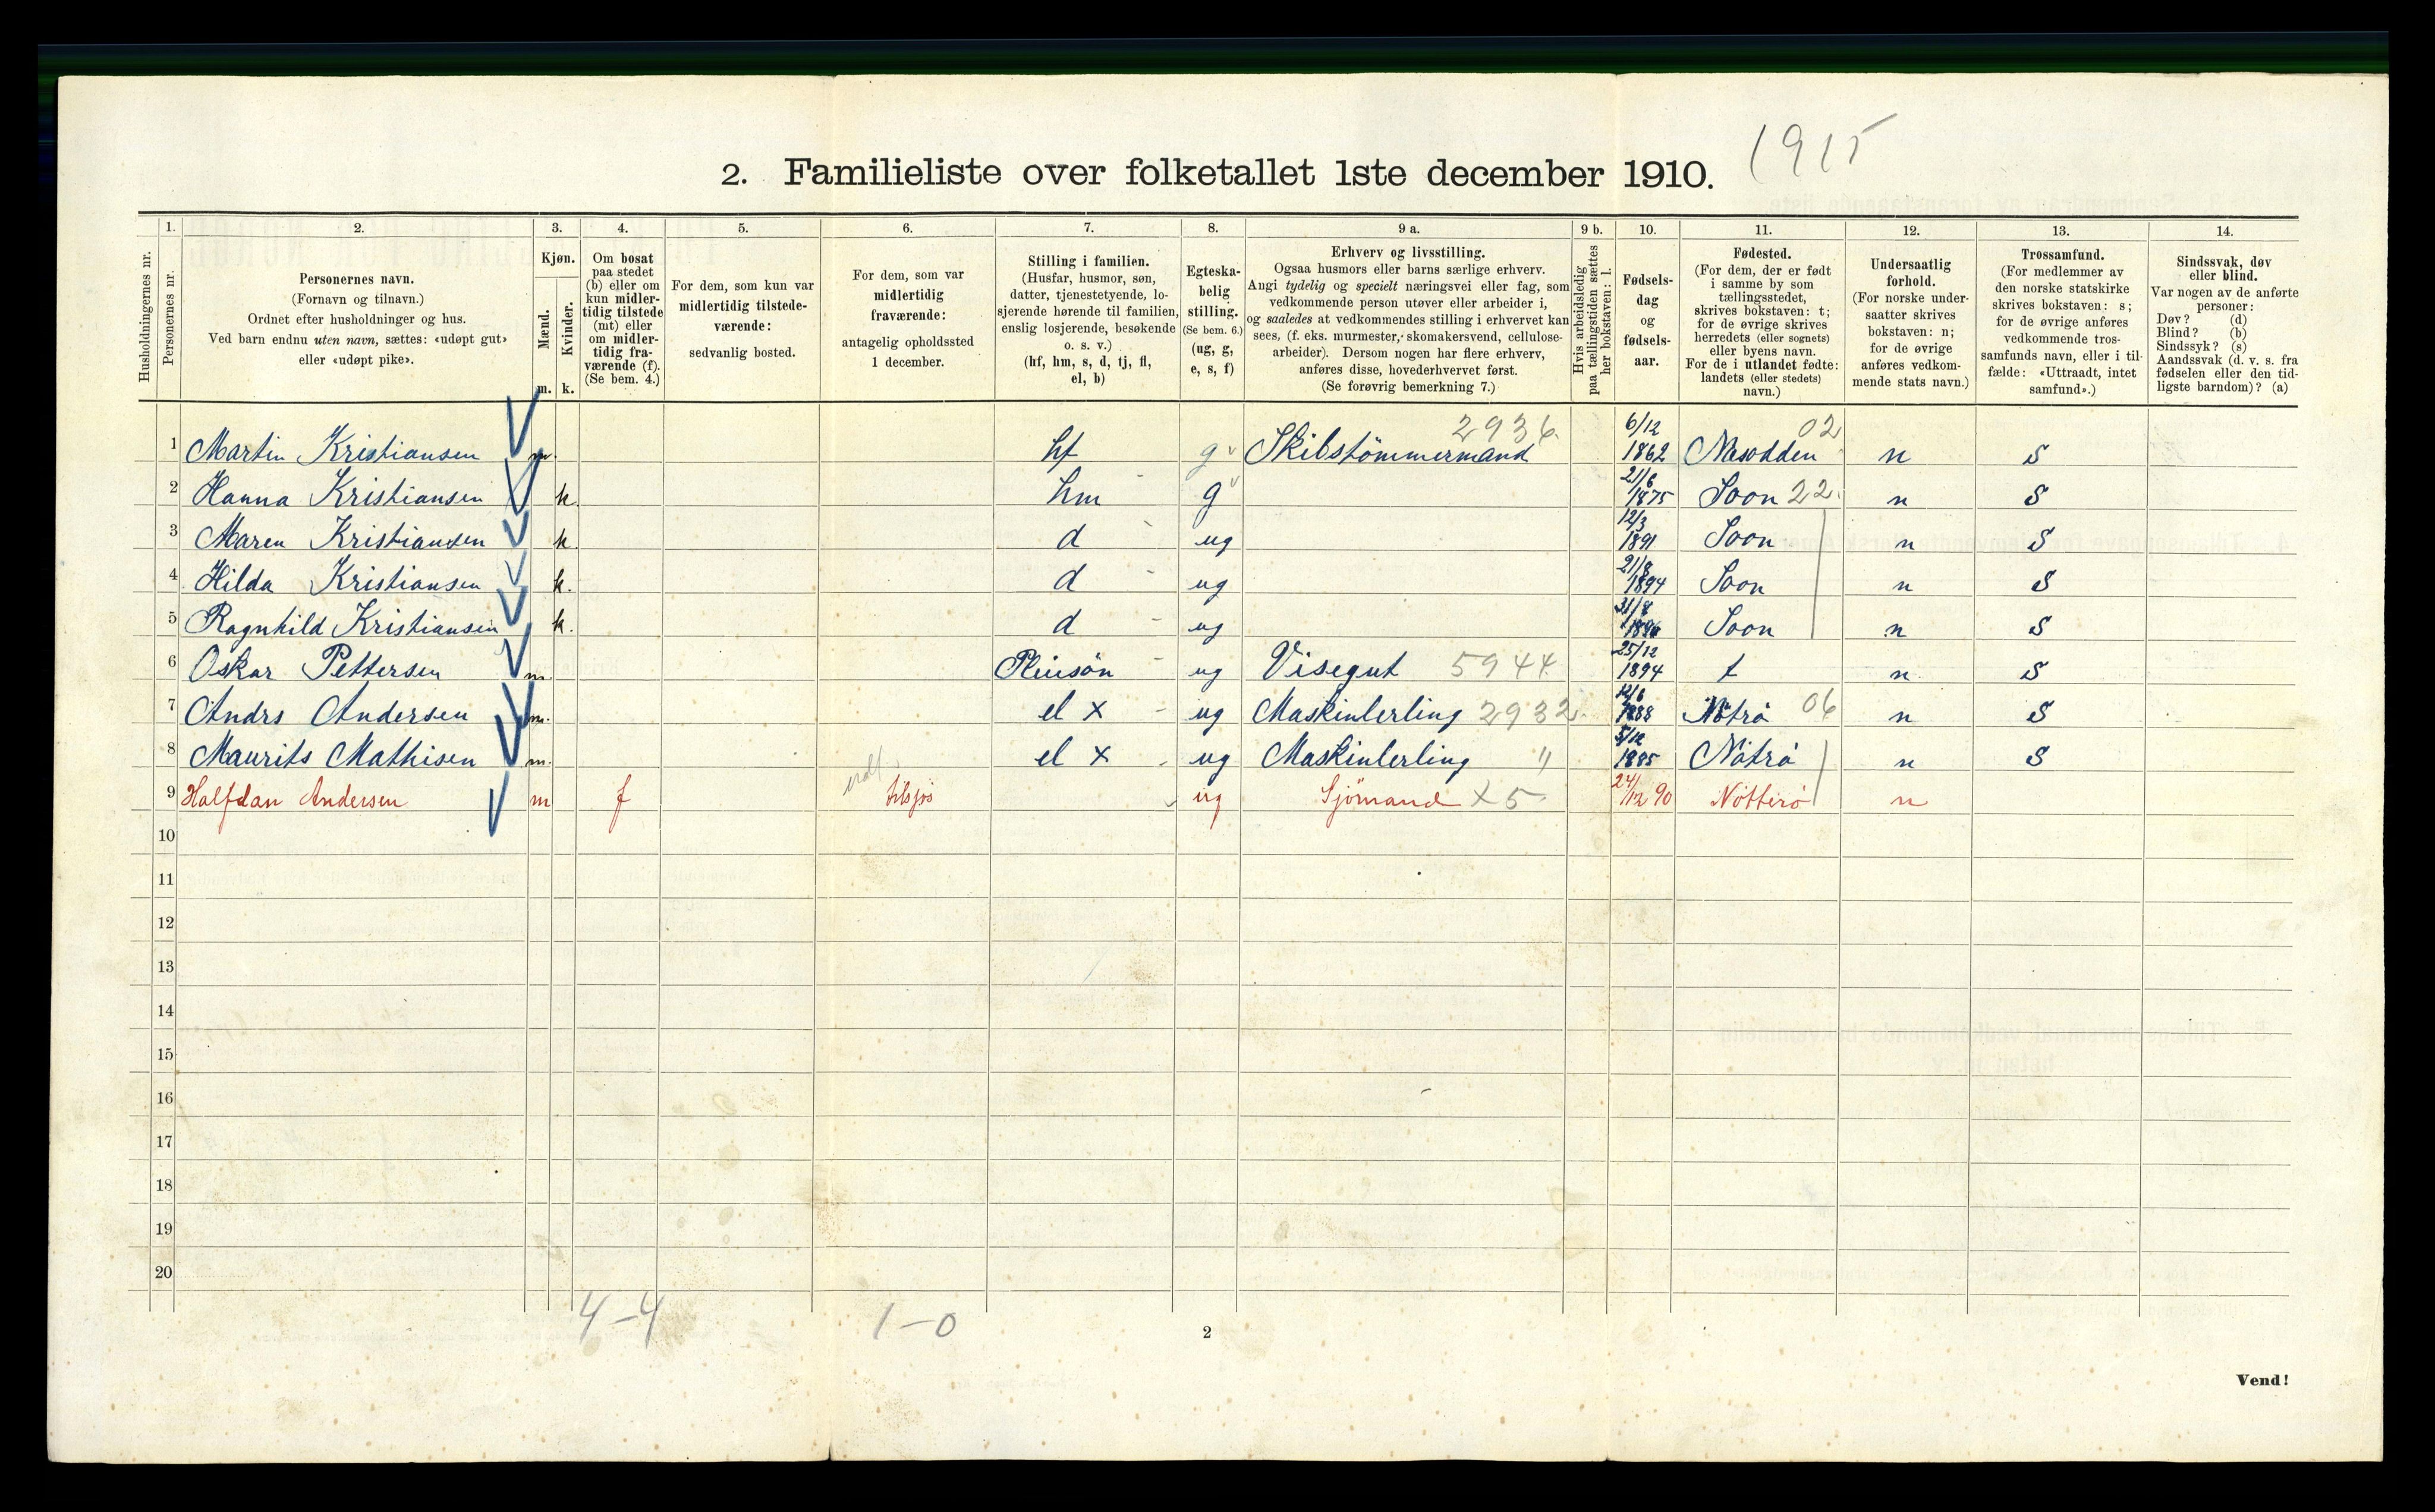 1915
2. Familieliste over folketallet 1ste december 1910.
Husholdningernes nr.
1. Personernes nr.
2. Personernes navn.
(Fornavn og tilnavn.)
Ordnet efter husholdninger og hus.
Ved barn endnu uten navn, sættes: «udøpt gut»
eller «udøpt pike».
3. Kjøn.
Mænd. m.
Kvinder. k.
4. Om bosat
paa stedet
(b) eller om
kun midler-
tidig tilstede
(mt) eller
om midler-
tidig fra-
værende (f).
(Se bem. 4.)
5. For dem, som kun var
midlertidig tilstede-
værende:
sedvanlig bosted.
6. For dem, som var
midlertidig
fraværende:
antagelig opholdssted
1 december.
7. Stilling i familien.
(Husfar, husmor, søn,
datter, tjenestetyende, lo-
sjerende hørende til familien,
enslig losjerende, besøkende
o. s. v.)
(hf, hm, s, d, tj, fl,
el, b)
8. Egteska-
belig
stilling.
(Se bem. 6.)
(ug, g,
e, s, f)
9 a. Erhverv og livsstilling.
Ogsaa husmors eller barns særlige erhverv.
Angi tydelig og specielt næringsvei eller fag, som
vedkommende person utøver eller arbeider i,
og saaledes at vedkommendes stilling i erhvervet kan
sees, (f. eks. murmester, skomakersvend, cellulose-
arbeider). Dersom nogen har flere erhverv,
anføres disse, hovederhvervet først.
(Se forøvrig bemerkning 7.)
9 b. Hvis arbeidsledig
paa tællingstiden sættes
her bokstaven: l.
10. Fødsels-
dag
og
fødsels-
aar.
11. Fødested.
(For dem, der er født
i samme by som
tællingsstedet,
skrives bokstaven: t;
for de øvrige skrives
herredets (eller sognets)
eller byens navn.
For de i utlandet fødte:
landets (eller stedets)
navn.)
12. Undersaatlig
forhold.
(For norske under-
saatter skrives
bokstaven: n;
for de øvrige
anføres vedkom-
mende stats navn.)
13. Trossamfund.
(For medlemmer av
den norske statskirke
skrives bokstaven: s;
for de øvrige anføres
vedkommende tros-
samfunds navn, eller i til-
fælde: «Uttraadt, intet
samfund».)
14. Sindssvak, døv
eller blind.
Var nogen av de anførte
personer:
Døv? (d)
Blind? (b)
Sindssyk? (s)
Aandssvak (d. v. s. fra
fødselen eller den tid-
ligste barndom)? (a)
1 Martin Kristiansen m. hf g Skibstömmermand 2936. 6/12 1862 Nesodden 02 n S
2 Hanna Kristiansen k. hm g 21/6 1875 Soon 22. n S
3 Maren Kristiansen k. d ug 12/3 1891 Soon n S
4 Hilda Kristiansen k. d ug 21/8 1894 Soon n S
5 Ragnhild Kristiansen k. d ug 31/8 Soon n S
6 Oskar Pettersen m Pleiesön ug Visegut 5944 25/12 1894 t n S
7 Andrs Andersen m. el x ug Maskinlerling 2932. 12/6 1888 Nötrö 06 n S
8 Maurits Mathisen m. el x ug Maskinlerling " 5/12 1885 Nötrö n S
9 Halfdan Andersen m f tilsjös ug Sjömand x5 24/12 90 Nötterö n
10
11
12
13
14
15
16
17
18
19
20
4-4 1-0
2
Vend!